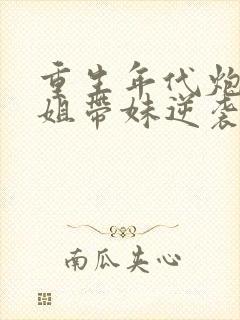 重生年代炮
姐带妹逆袭
南瓜夹心